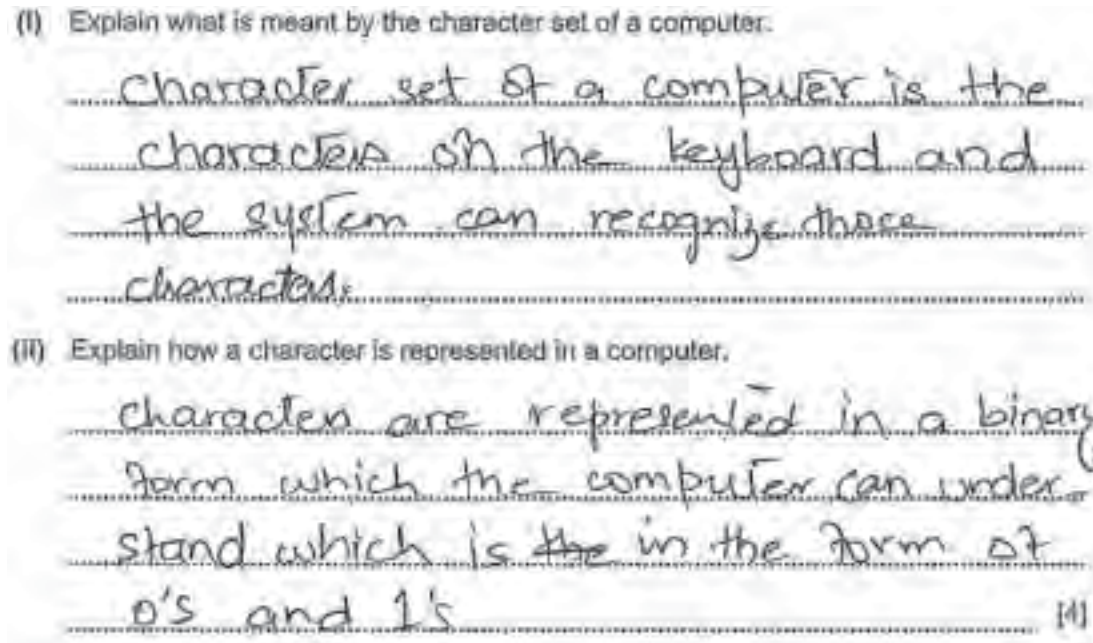 (i) Explain what is meant by the character set of a computer.
character set of a computer is the
characters on the keyboard and
the system can recognize those
characters.
(ii) Explain how a character is represented in a computer.
character are represented in a binary
form which the computer can under-
stand which is the in the form of
0's and 1's [4]